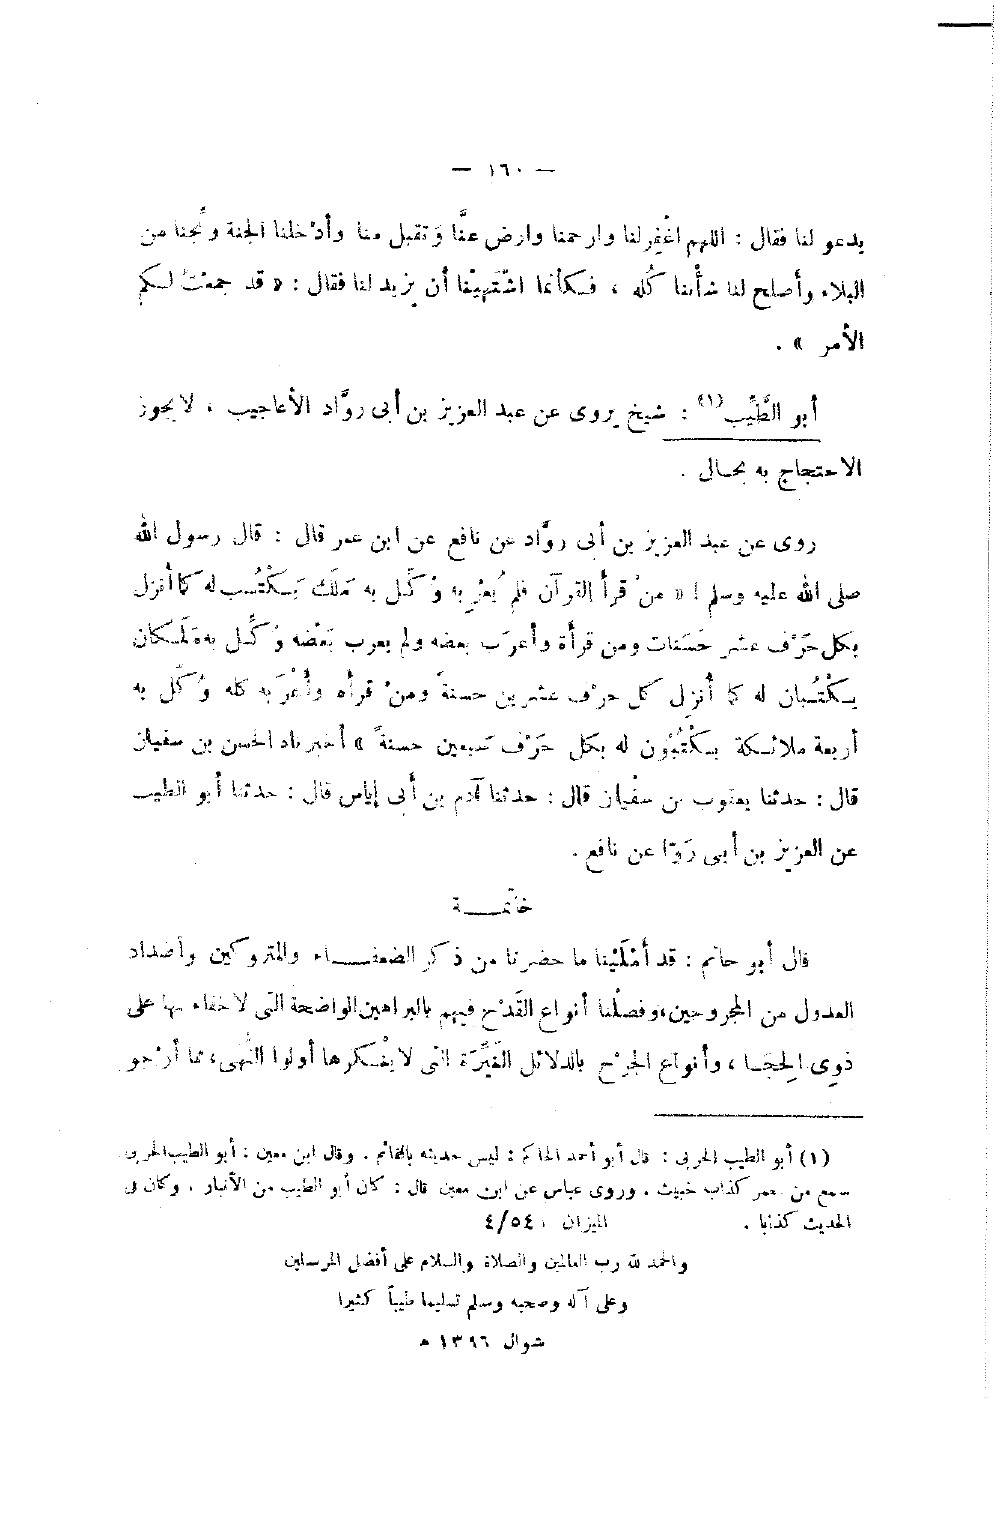 — ١٦٠ —
يدعو لنا فقال : اللهم اغْفِرلنا وارحمنا وارض عنَّا وَتقبل منا وأدْخلنا الجنة ونُجِّنا من
البلاء وأصلح لنا شأْننا كُله ، فـكأنما اشْتَهيْنا أن يزيد لنا فقال : « قد جمعْتُ لـكم
الأمر » .
أبو الطَّيِّب(١) : شيخ يروى عن عبد العزيز بن أبى روَّاد الأعاجيب ، لا يجوز
الاحتجاج به بحـال .
روى عن عبد العزيز بن أبى روَّاد عن نافع عن ابن عمر قال : قال رسول الله
صلى الله عليه وسلم : « منْ قرأ القرآن فلم يُعْرِبه وُكِّـل به مَلَك يَـكْتُـب له كما أنزل
بكل حَرْف عشر حَسَنات ومن قرأَه وأعرَب بعضه ولم يعرب بَعْضه وُكِّـل به مَلَـكان
يـكْتُـبان له كما أُنزِل كل حرْف عشرين حسنةً ومنْ قرأه وأَعْرَبه كله وُكِّل به
أربعة ملائـكة يـكْتُبُون له بكل حَرْف سبعين حسنةً » أخبرناه الحسن بن سفيان
قال : حدثنا يعقوب بن سفْيان قال : حدثنا آدم بن أبى إياس قال : حدثنا أبو الطيب
عن العزيز بن أبى رَوّا عن نافع .
خاتمـــة
قال أبو حاتم : قد أَمْلَيْنا ما حضرنا من ذكر الضعفـــاء والمتروكين وأضداد
العدول من المجروحين، وفصلْنا أنواع القَدْح فيهم بالبراهين الواضحة التى لا خفاء بها على
ذوِى الحِجَـا ، وأنواع الجرْح بالدلائل النَّيِّرَة التى لا يُنْـكرها أولوا النُّهى، مما أرْجو
(١) أبو الطيب الحربى : قال أبو أحمد الحاكم : ليس حديثه بالقائم . وقال ابن معين : أبو الطيب الحربى
سمع من معمر كذاب خبيث . وروى عباس عن ابن معين قال : كان أبو الطيب من الأنبار . وكان فى
الحديث كذابا . الميزان ٤/٥٤٠
والحمد لله رب العالمين والصلاة والسلام على أفضل المرسلين
وعلى آله وصحبه وسلم تسليما طيباً كثيرا
شوال ١٣٩٦ هـ